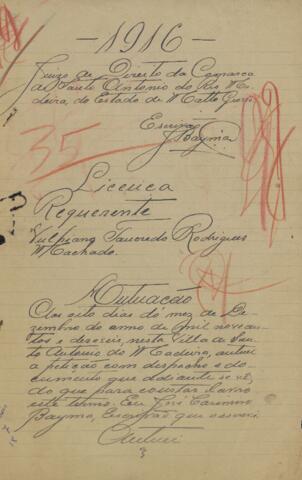 — 1916 —
Juizo de Direito da Comarca
de Santo Antonio do Rio Ma-
deira, do Estado de Matto Grosso
Escrivão
J Bayma
35
Licença
Requerente
Vulpiano Tancredo Rodrigues
Machado.
Autuação
Aos oito dias do mez de De-
zembro do anno de mil novecen-
tos e deseseis, nesta Villa de San-
to Antonio do Madeira, autuei
a petição com despacho e do-
cumento que adiante se vê,
do que para constar lavro
este termo. Eu José
Bayma, Escrivão que escrevi
Autuei